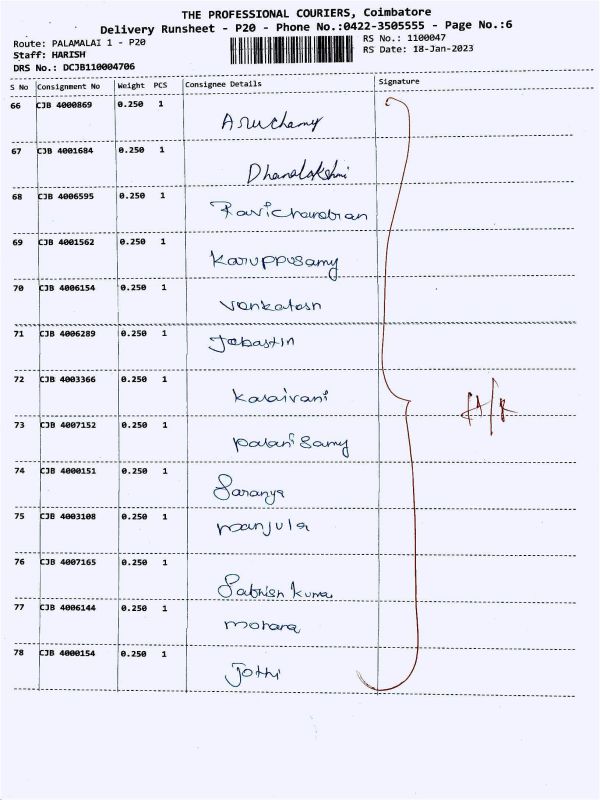 THE PROFESSIONAL COURIERS, Coimbatore
Delivery Runsheet - P20 - Phone No.:0422-3505555 - Page No.:6
Route: PALAMALAI 1 - P20 RS No.: 1100047
Staff: HARISH RS Date: 18-Jan-2023
DRS No.: DCJB110004706
S No Consignment No Weight PCS Consignee Details Signature
66 CJB 4000869 0.250 1
Aruchamy
67 CJB 4001684 0.250 1
Dhanalakshmi
68 CJB 4006595 0.250 1
Ravichandran
69 CJB 4001562 0.250 1
Karuppusamy
70 CJB 4006154 0.250 1
Venkatesh
71 CJB 4006289 0.250 1
Jebastin
72 CJB 4003366 0.250 1
Kalaivani
73 CJB 4007152 0.250 1
Palanisamy
74 CJB 4000151 0.250 1
Saranya
75 CJB 4003108 0.250 1
manjula
76 CJB 4007165 0.250 1
Sathish Kumar
77 CJB 4006144 0.250 1
mohana
78 CJB 4000154 0.250 1
Jothi